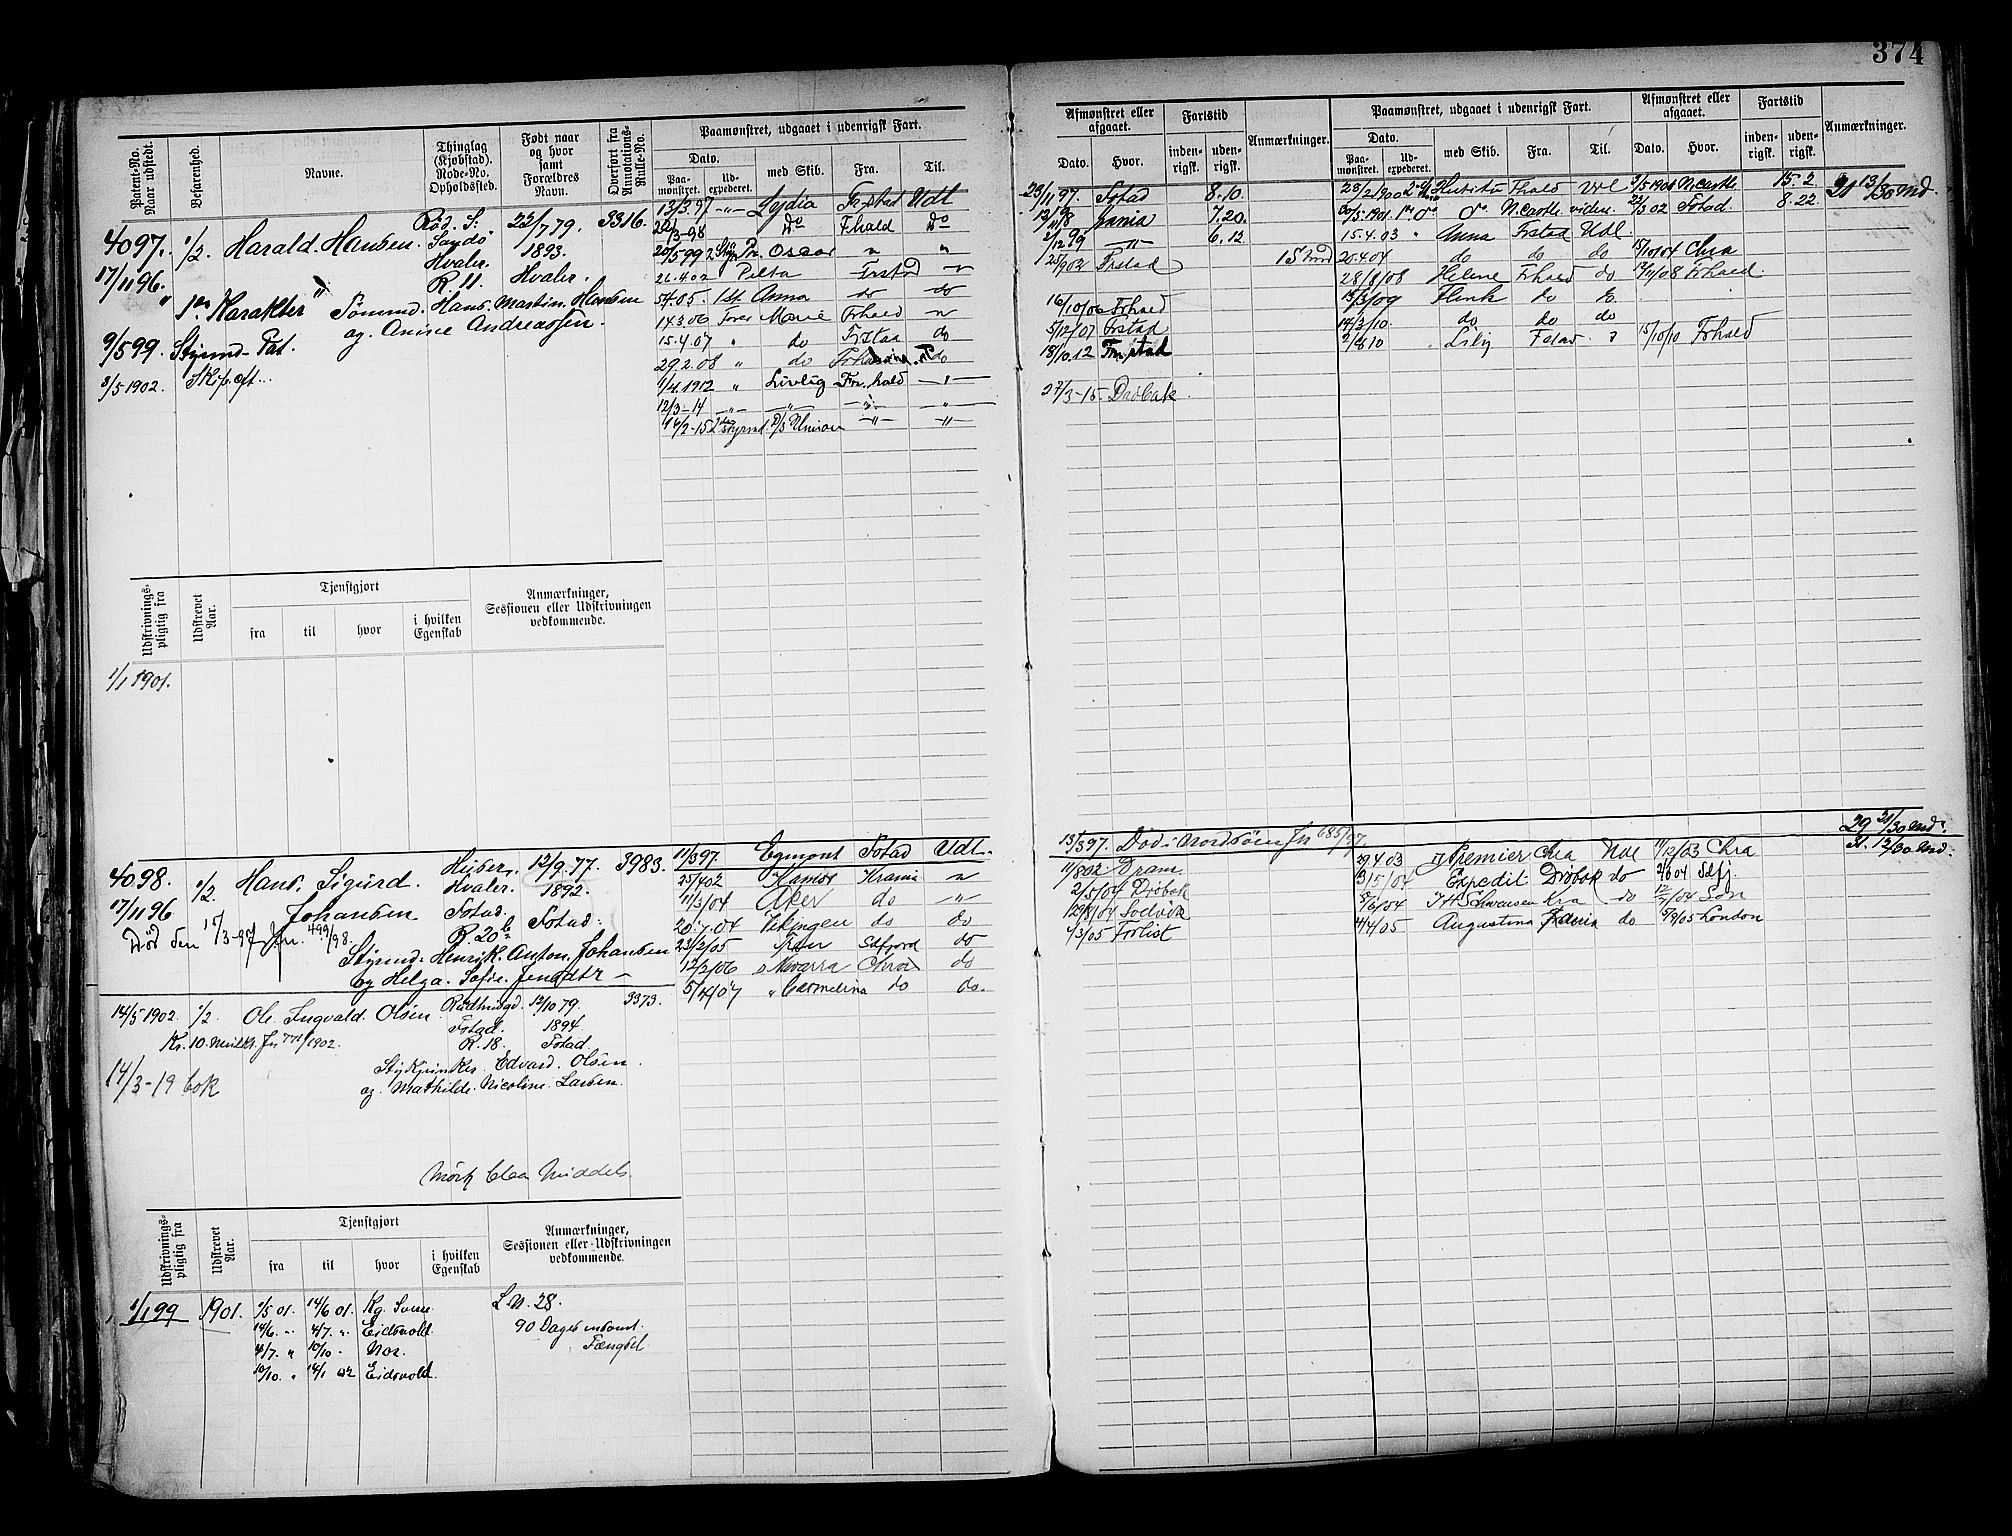 374
Patent-No. Naar udstedt.
Befarenhed.
Navne.
Thinglag (Kjøbstad). Rode-No. Opholdssted.
Født naar og hvor samt Forældres Navn.
Overført fra Annotations-Rulle-No.
Paamønstret, udgaaet i udenrigsk Fart.
Dato.
Paa-mønstret.
Ud-expederet.
med Skib.
Fra.
Til.
Afmønstret eller afgaaet.
Dato.
Hvor.
Fartstid
inden-rigsk.
uden-rigsk.
Anmærkninger.
Paamønstret, udgaaet i udenrigsk Fart.
Dato.
Paa-mønstret.
Ud-expederet.
med Skib.
Fra.
Til.
Afmønstret eller afgaaet.
Dato.
Hvor.
Fartstid
inden-rigsk.
uden-rigsk.
Anmærkninger.
4097. 1/2 Harald. Hansen. Rød. S. 22/7 79. 3316.
Sandø 1893.
Hvaler. Hvaler.
R. 11.
17/11 96.
1ste Karakter
Sømmd. Hans. Martin. Hansen
og Anine Andreassen.
9/5 99. Styrmd- Pat.
3/5 1902. Skipseft...
13/3.97 -"- Lydia Frstad Udt
22/3-98 Do Fhald Do
20/5 99 2 Styr Oscar " "
26.4.02 Frstad "
5/4.05. 1st. Anna do do
14.3.06 Marie Frhald "
15.4.07 " do Frstad do
29.2.08 " do do
1/4.1912 " Livlig Fr.hald -"-
12/3-14 -"- -"- -"- "
14/2-15 2den Styrmd. D/S Union -"- -"-
23/11 97. Fstad 8.10.
7.20.
2/12 99 -"- 6.12
Frstad
16/10/06 Frhald
5/12/07 Frstad
18/10.12 Fr.stad
27/3-15. Drøbak
28/2/900 Fhald Udl 2/5 1901 N.castle 15.2
30/5.1901. do N.castle viden. 22/3 02 Fstad. 8.22
15.4.03 " Anna Frstad Udl.
20.4.04 do do do 15/10/04 Chra
28/8/08 Helene Frhald do Frhald
15/3/09 Flink do
14/3/10. do do do
2/8 10 Lilly Fstad 15/10/10 Frhald
21 13/30 Md.
Udskrivnings-pligtig fra
Udskrevet Aar.
Tjenstgjort
fra
til
hvor
i hvilken Egenskab
Anmærkninger, Sessionen eller Udskrivningen vedkommende.
1/1 1901.
4098. 1/2 Hans. Sigurd. Hvaler. 12/9.77. 3983.
Johansen 1892.
17/11 96 Fstad. Fstad.
Død den 13/3-97 Jn. 499/98. R. 20b
Styrmd. Henrik. Anton. Johansen
og Helga. Sofie. Jensdtr -
11/3 97. Egmont Fstad Udt.
13/3 97. Død i Nordsøen Jn 685/97.
29 21/30 Md.
14/5 1902. 1/2 Ole Ingvald. Olsen. 12/10 79. 3373.
Fstad. 1894
Kr. 10. Mulkt. Jn 771/1902. R. 18. Fstad.
Edvard. Olsen.
og Mathilde. Nicoline. Larsen.
14/3-19 bok
25/4 02 Krania "
11/3/04 Aker do "
20.7.04 Vikingen do do
23/2/05 Sdfjord do
12/2/06 Navarra Chra do
5/4/07 " Carmelina do do.
11/8 02 Dram.
2/5/04 Drøbak
29/8/04
4/3/05 Forlist
29.4.03 Premier Chra Udl 11/12/03 Chra
3/5/04 Expedit Drøbak do 2/6 04 Sdfj.
5/6/04 J H Svensen Kra do Son
4/4/05 Augustina do 9/9/05 London
21. 12/30 Md.
Udskrivnings-pligtig fra
Udskrevet Aar.
Tjenstgjort
fra
til
hvor
i hvilken Egenskab
Anmærkninger, Sessionen eller Udskrivningen vedkommende.
1/1 99 1901. 1/5 01. 14/6 01. Kg. Sverre L. N. 28.
14/6. " 4/7. " Eidsvold. 90 Dages
4/7. " 10/10 " Nor. Fængsel
10/10. " 14/1 02 Eidsvold.